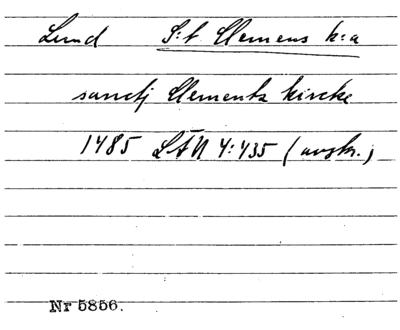 Lund S:t Clemens k:a
sanctj Clementz kircke
1485 LÄU 4:435 (avskr.)
Nr 5856.